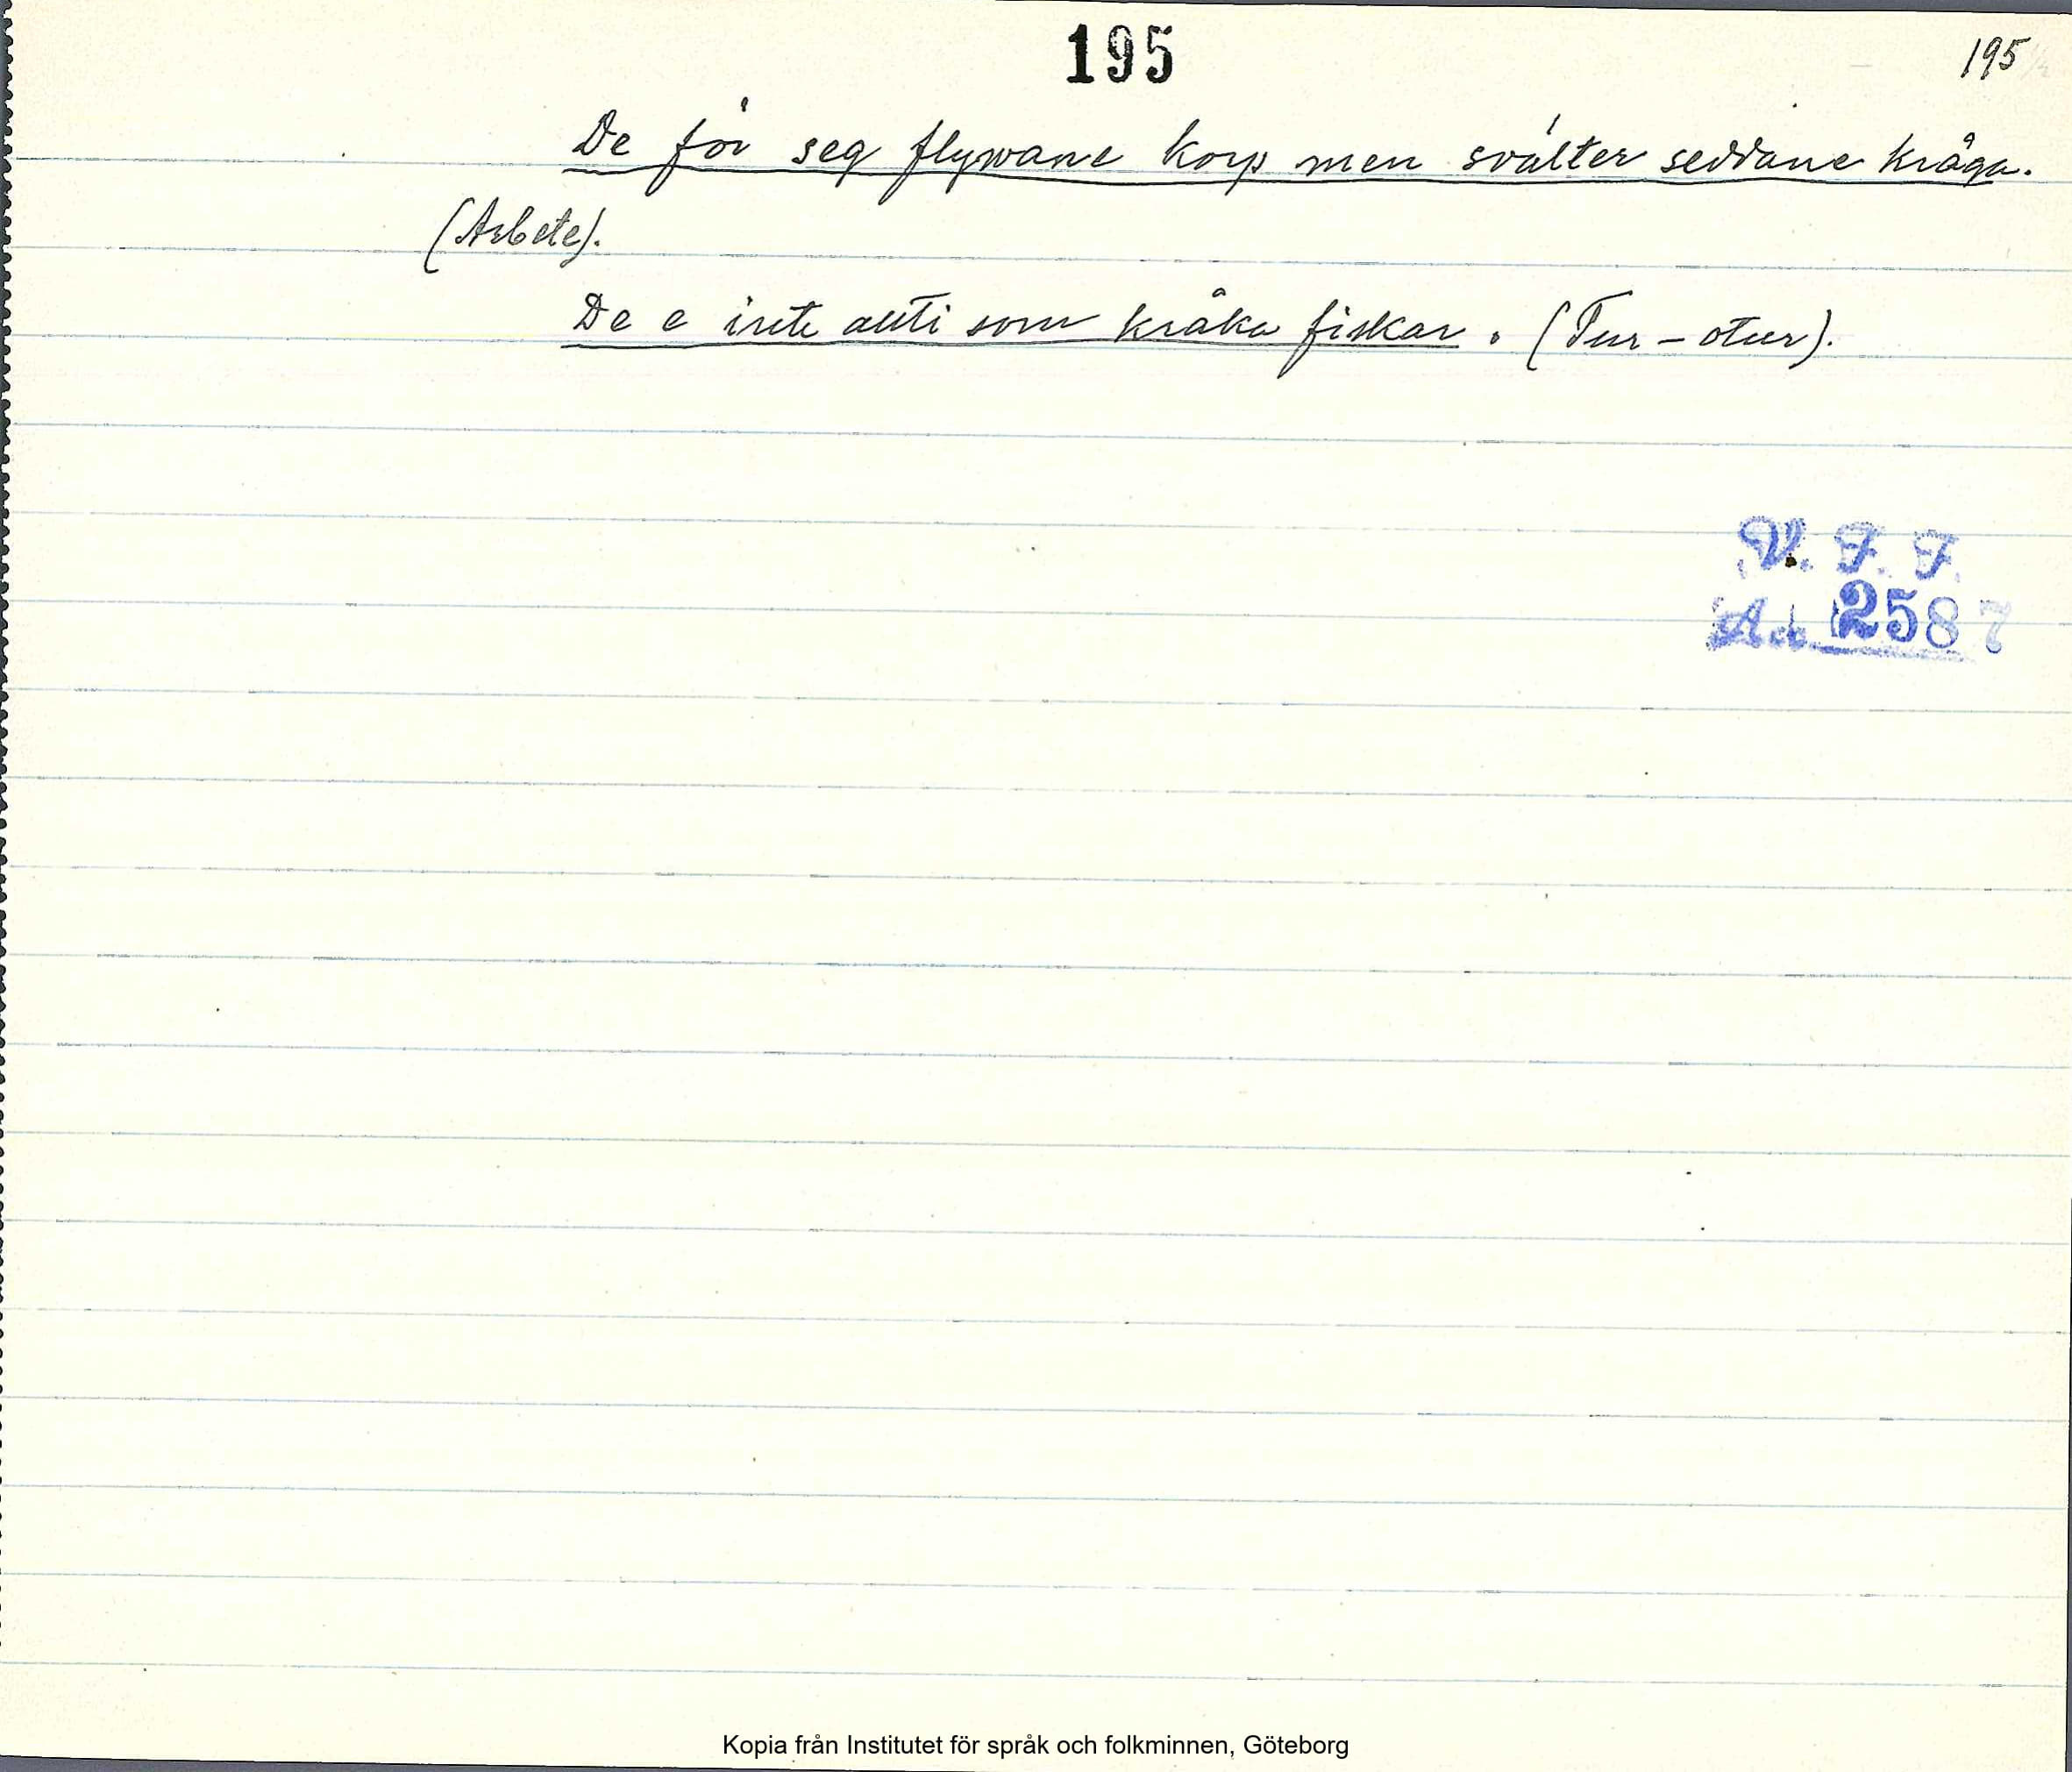 195
195
De för seg flyvane korp men svälter seddane kråga.
(Arbete).
De e inte alti som kråka fiskar. (Tur - otur).
V. F. F.
Acc 2587
Kopia från Institutet för språk och folkminnen, Göteborg